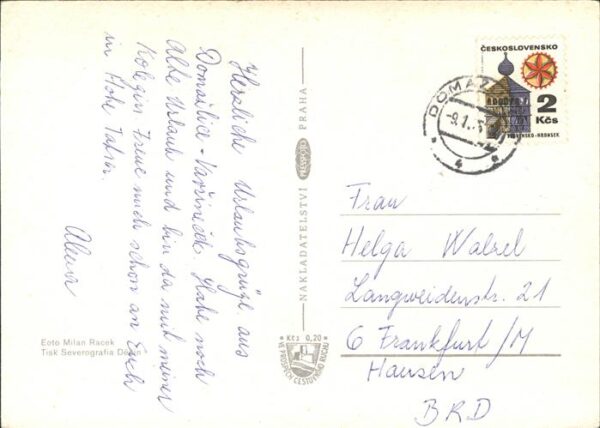 Herzliche Urlaubsgrüße aus
Domažlice - Havhinek. Habe noch
Alte Urlaub und bin da mit meiner
Kolegin Freue mich schon an Euch
in Hohe Tatra.
Alena
Foto Milan Racek
Tisk Severografia Děčín
NAKLADATELSTVÍ PRESSFOTO PRAHA
* Kčs 0,20 *
VE PROSPĚCH CESTOVNÍHO RUCHU
ČESKOSLOVENSKO
2
Kčs
SLOVENSKO-HRONSEK
DOMAŽ
-9.1.
4
Frau
Helga Walzel
Langweidenstr. 21
6 Frankfurt/M
Hausen
BRD